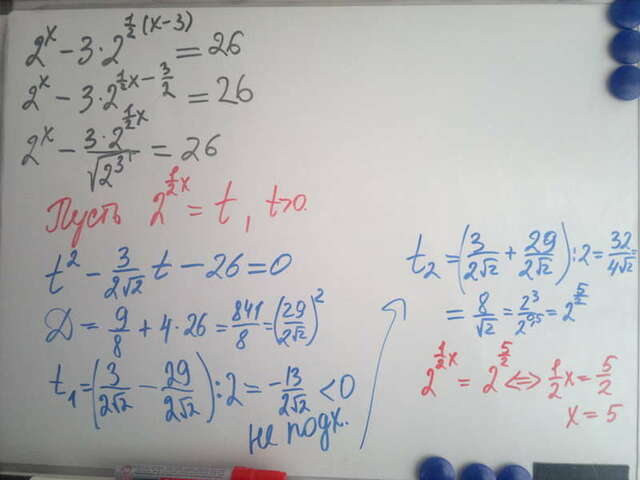 2^x − 3·2^{1/2(x−3)} = 26
2^x − 3·2^{1/2x − 3/2} = 26
2^x − 3·2^{1/2x}/√(2^3) = 26
Пусть 2^{1/2x} = t, t>0.
t^2 − 3/(2√2) t − 26 = 0
D = 9/8 + 4·26 = 841/8 = (29/(2√2))^2
t₁ = (3/(2√2) − 29/(2√2)):2 = −13/(2√2) < 0
не подх.
t₂ = (3/(2√2) + 29/(2√2)):2 = 32/(4√2) =
= 8/√2 = 2^3/2^{0,5} = 2^{5/2}
2^{1/2x} = 2^{5/2} <=> 1/2x = 5/2
x = 5